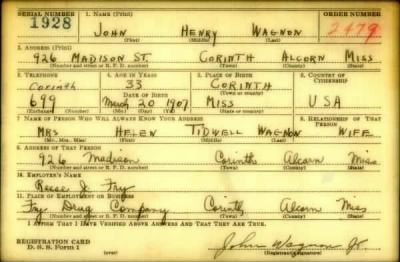 SERIAL NUMBER 1. NAME (Print) ORDER NUMBER
1928 JOHN HENRY WAGNON 2479
(First) (Middle) (Last)
2. ADDRESS (Print)
926 MADISON ST. CORINTH ALCORN MISS
(Number and street or R. F. D. number) (Town) (County) (State)
3. TELEPHONE 4. AGE IN YEARS 5. PLACE OF BIRTH 6. COUNTRY OF CITIZENSHIP
Corinth 33 CORINTH
DATE OF BIRTH
699 March 20 1907 MISS USA
(Exchange) (Number) (Mo.) (Day) (Yr.) (State or country)
7. NAME OF PERSON WHO WILL ALWAYS KNOW YOUR ADDRESS 8. RELATIONSHIP OF THAT PERSON
MRS HELEN TIDWELL WAGNON WIFE
(Mr., Mrs., Miss) (First) (Middle) (Last)
9. ADDRESS OF THAT PERSON
926 Madison Corinth Alcorn Miss.
(Number and street or R. F. D. number) (Town) (County) (State)
10. EMPLOYER'S NAME
Reese J. Fry
11. PLACE OF EMPLOYMENT OR BUSINESS
Fry Drug Company Corinth Alcorn Miss
(Number and street or R. F. D. number) (Town) (County) (State)
I AFFIRM THAT I HAVE VERIFIED ABOVE ANSWERS AND THAT THEY ARE TRUE.
REGISTRATION CARD
D. S. S. Form 1 (over) John Wagnon Jr